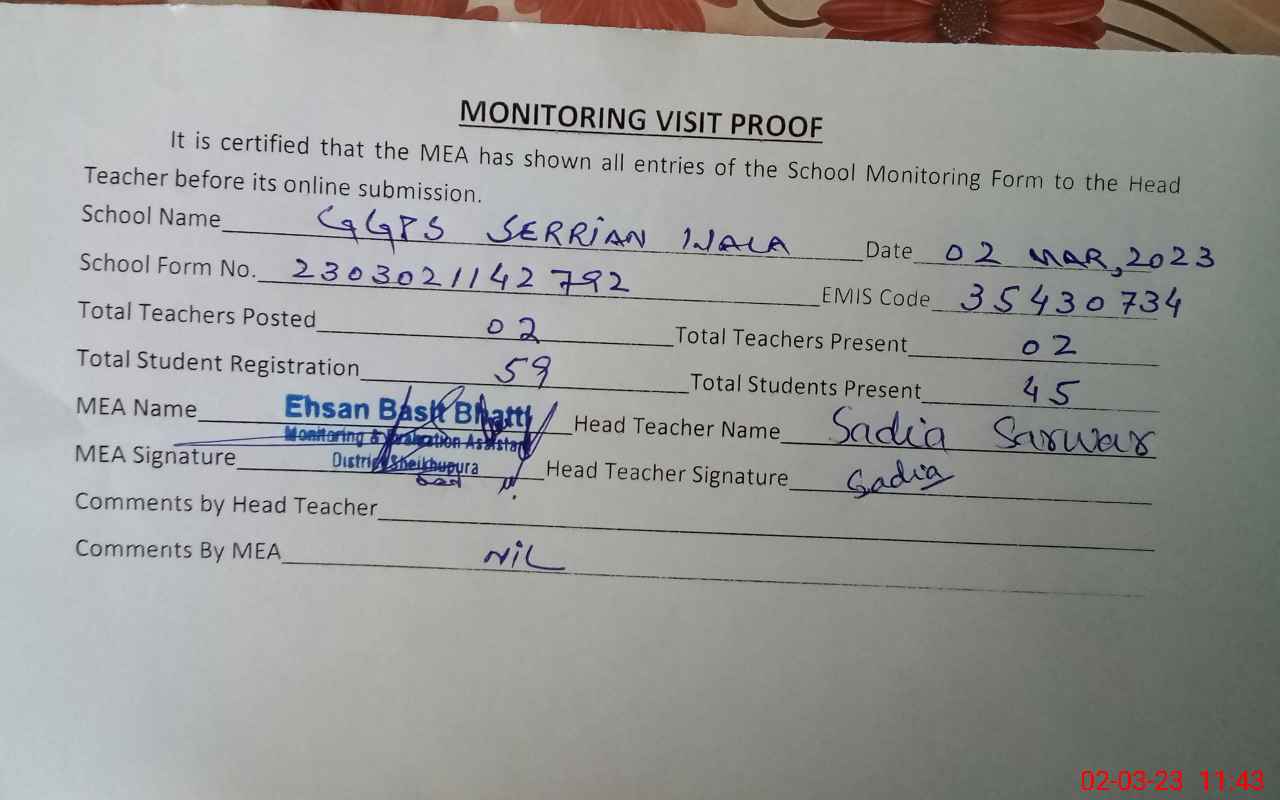 MONITORING VISIT PROOF
It is certified that the MEA has shown all entries of the School Monitoring Form to the Head
Teacher before its online submission.
School Name GGPS SERRIAN WALA Date 02 MAR, 2023
School Form No. 2303021142792 EMIS Code 35430734
Total Teachers Posted 02 Total Teachers Present 02
Total Student Registration 59 Total Students Present 45
MEA Name Ehsan Basit Bhatti Head Teacher Name Sadia Sarwar
Monitoring & Evaluation Assistant
MEA Signature District Sheikhupura Head Teacher Signature Sadia
Comments by Head Teacher
Comments By MEA NiL
02-03-23 11:43